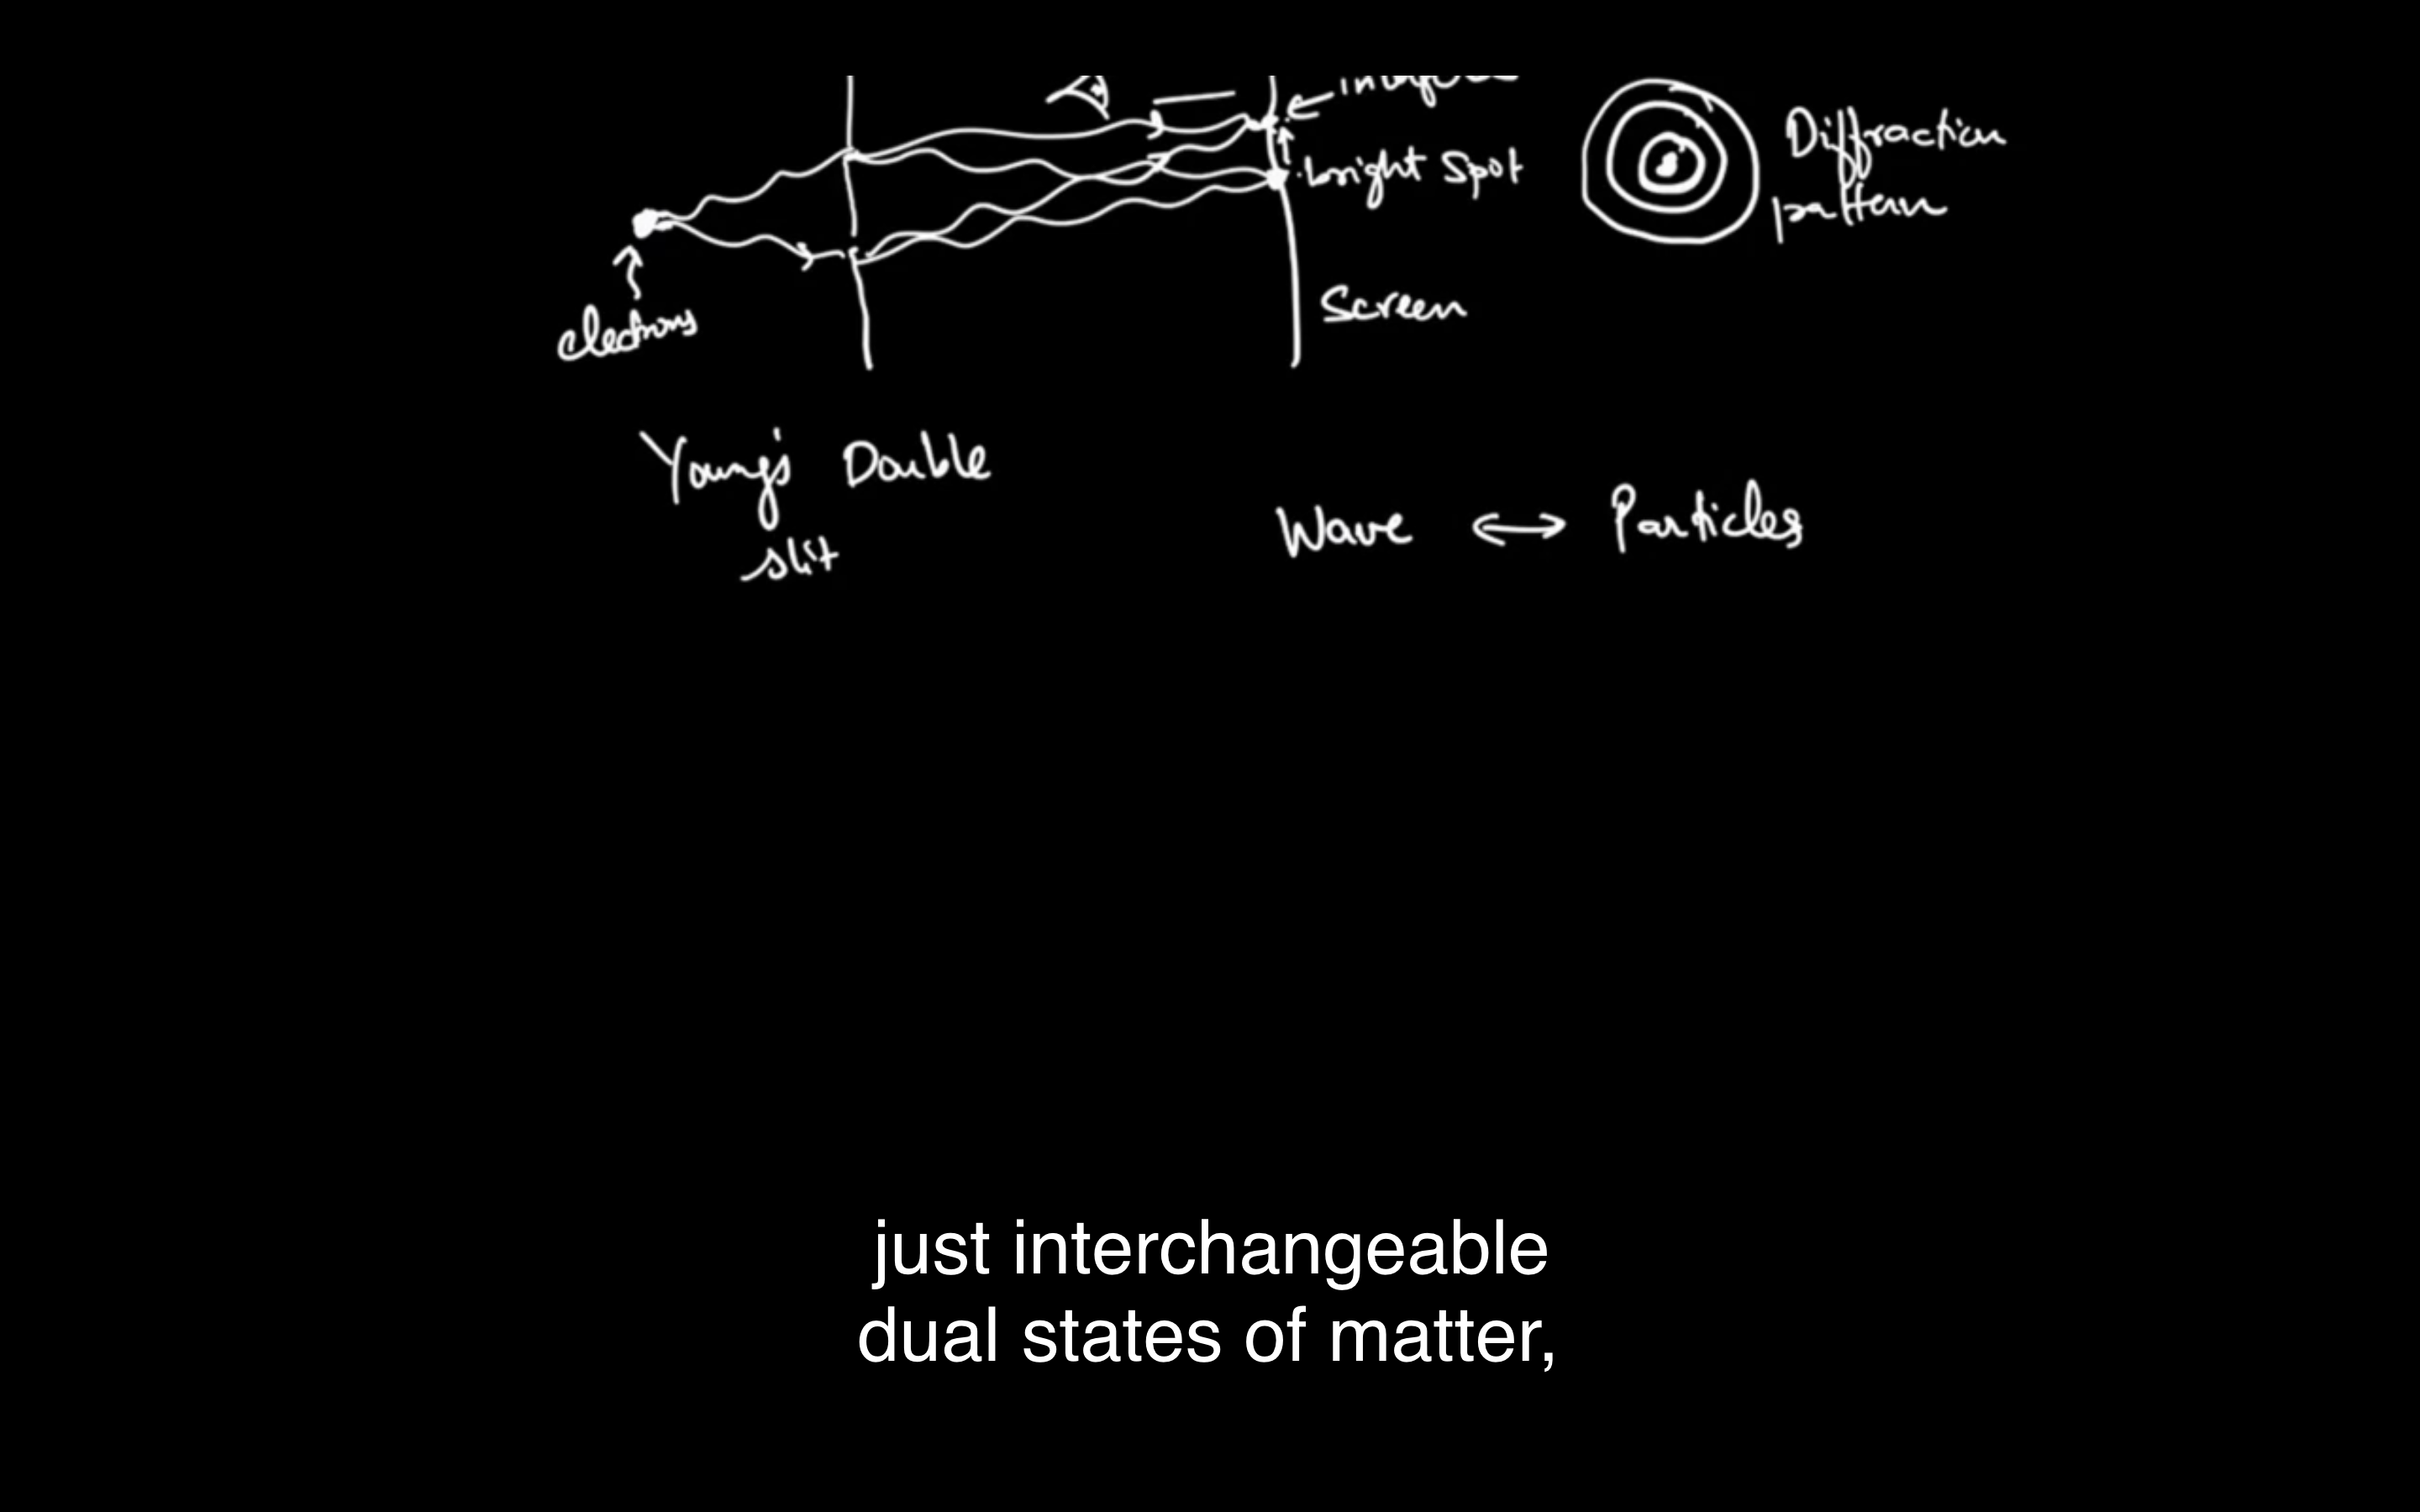 bright Spot
Diffraction
pattern
Screen
electrons
Young's Double
slit
Wave ↔ Particles
just interchangeable
dual states of matter,